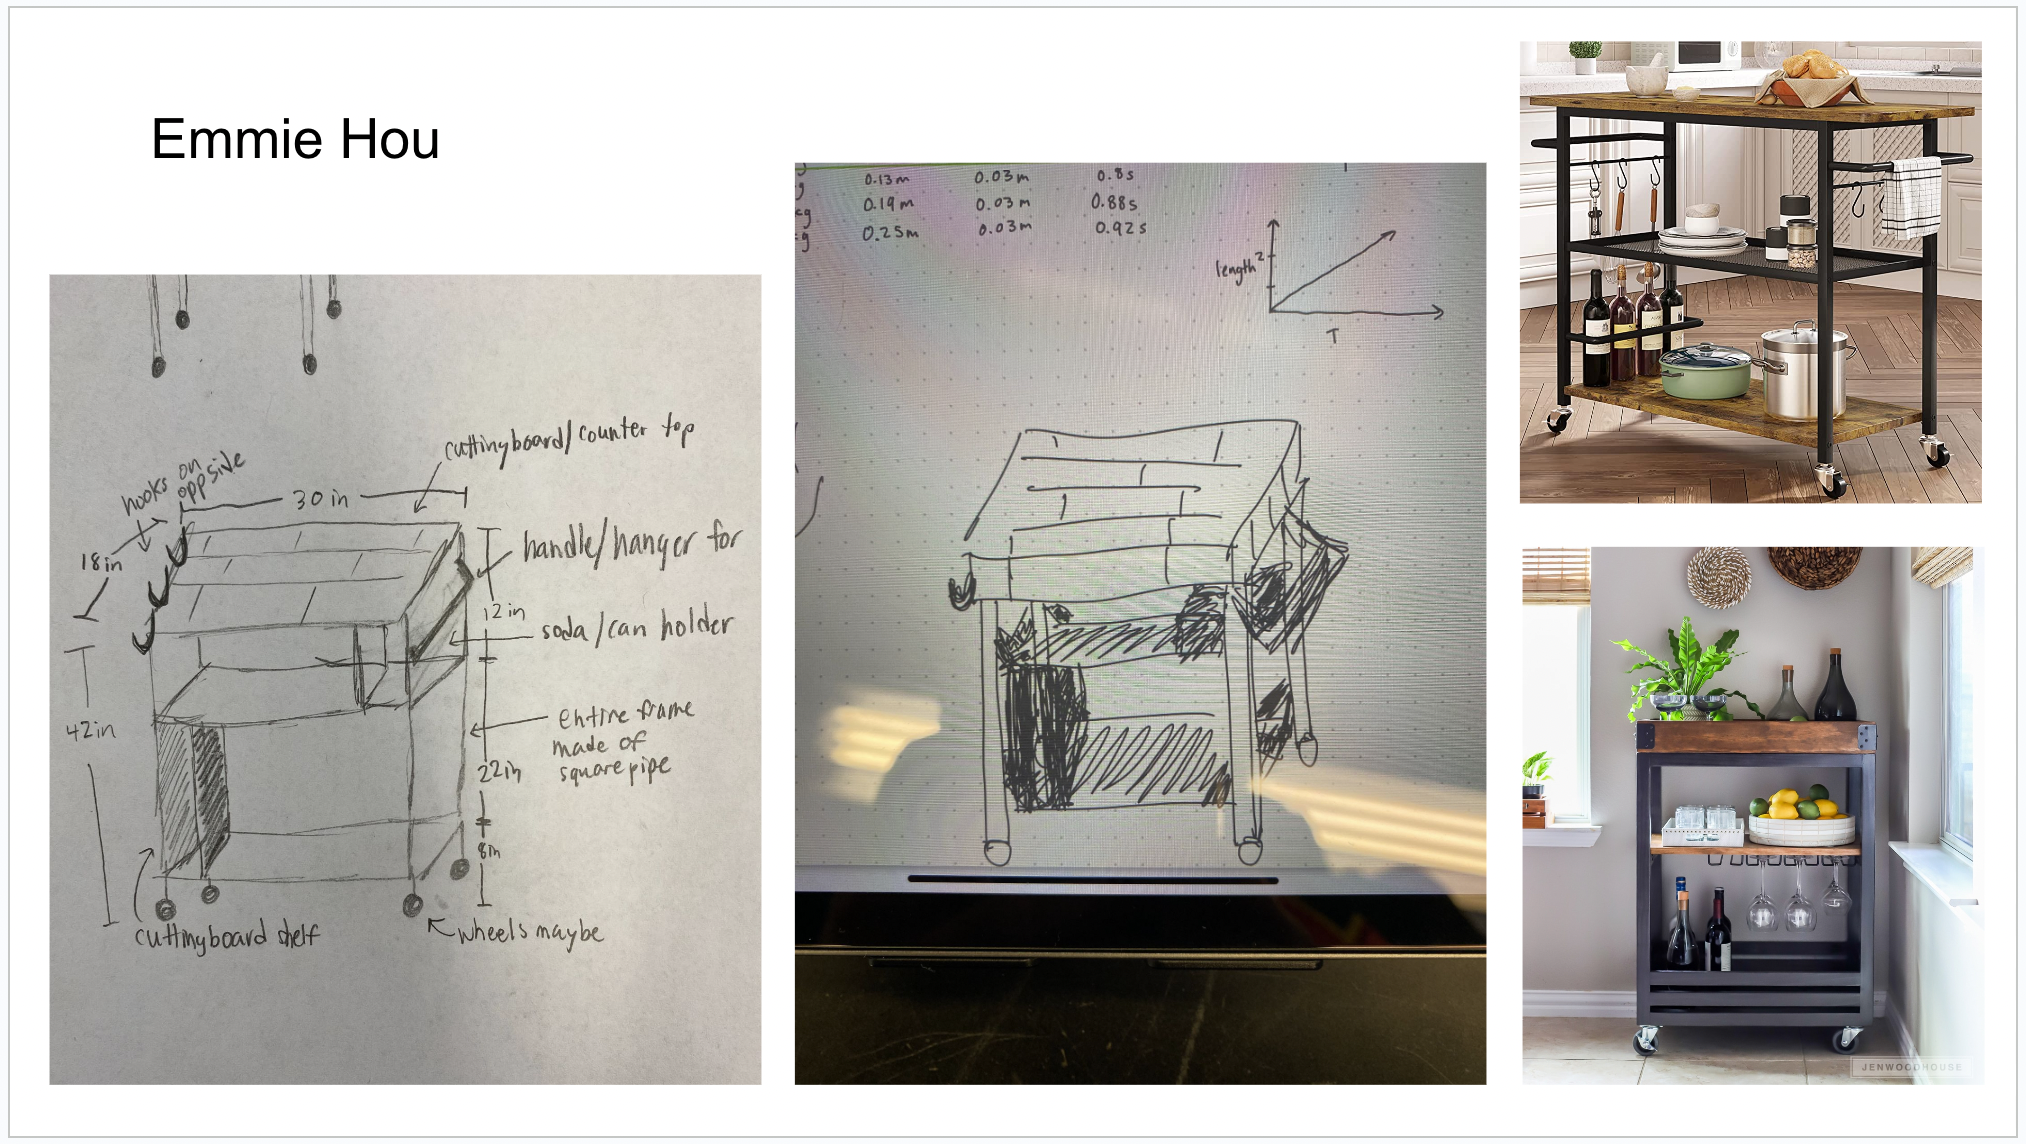 Emmie Hou
cuttingboard/counter top
hooks on
opp side
30 in
18in
handle/hanger for
12in
soda/can holder
42in
entire frame
made of
square pipe
22in
8in
cuttingboard shelf
wheels maybe
g 0.13m 0.03m 0.8s
kg 0.19m 0.03m 0.88s
kg 0.25m 0.03m 0.92s
length²
T
JENWOODHOUSE